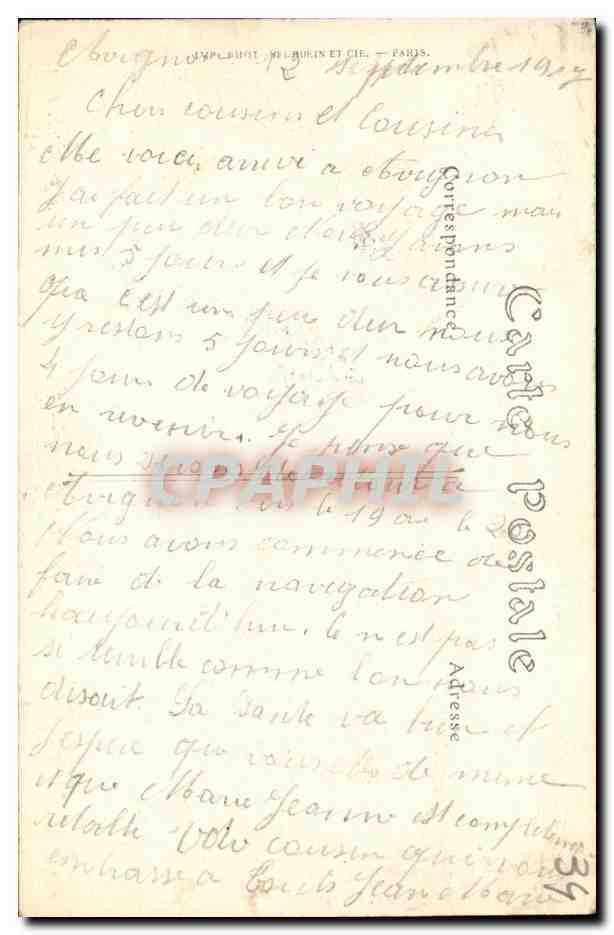 IMP. PHOT. SEGUIN ET CIE. — PARIS.
Avignon 12 septembre 1917
Chers cousins et Cousines
Me voici arrivé a Avignon
J'ai fait un bon voyage mais
un peu dur Nous avons
mis 5 jours et je vous assure
que c'est un peu dur nous
y restons 5 jours et nous avons
4 jours de voyage pour nous
en revenir. Je pense que
nous serons de
Avignon le 19 ou le 20
Nous avons commencé de
faire de la navigation
haujourd'hui. Ce n'est pas
si temble comme lon nous
disait. La Santé va bien et
J'espere que vous de meme
et que Marie Jeanne est completement
retablie Votre cousin qui vous
embrasse a touts Jean Marie
Carte Postale
Correspondance
Adresse
34
CPAPHIL